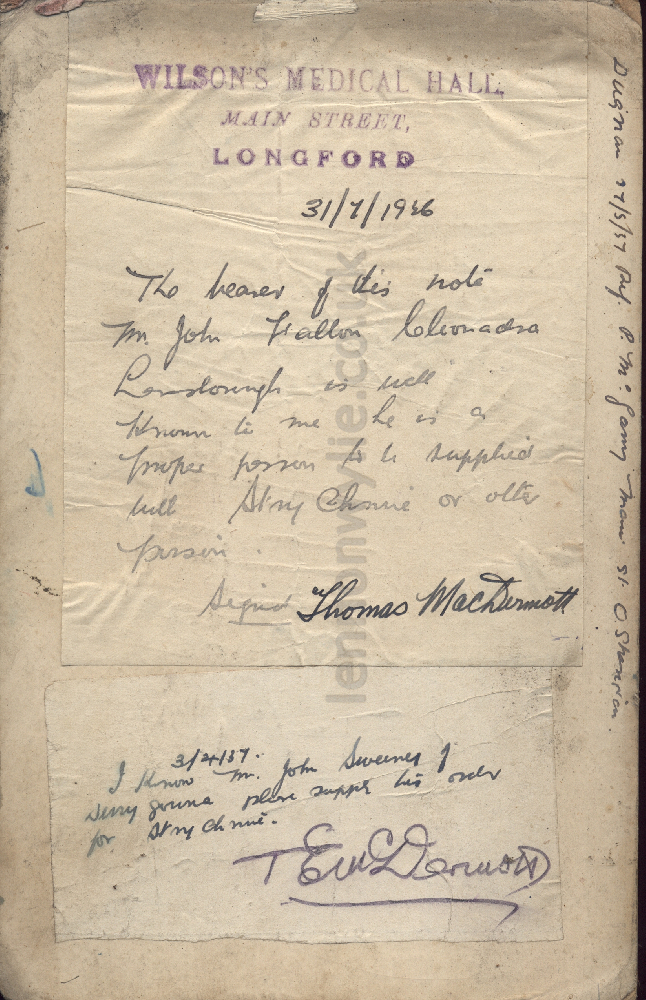 WILSON'S MEDICAL HALL,
MAIN STREET,
LONGFORD
31/7/1936
The bearer of this note
Mr. John Fallon Cleonadra
is well
known to me he is a
proper person to be supplied
with Strychnine or other
poison.
Signed Thomas MacDermott
3/4/37.
I know Mr. John Sweeney of
please supply his order
for Strychnine.
T E McDermott
Dugnan 27/5/37 P. Mc Main St.
lennonwylie.co.uk